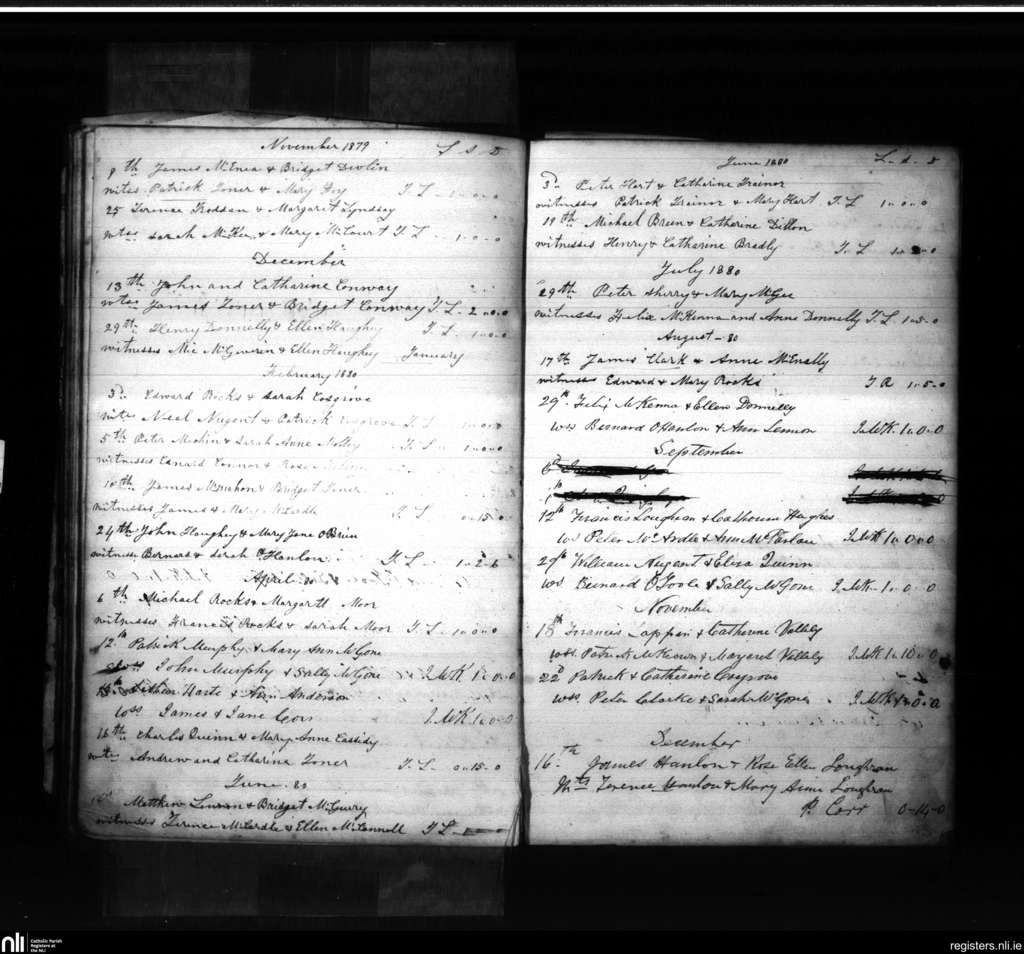 November 1879 £ S D
9th James McEnea & Bridget Devlin
wites Patrick Toner & Mary Foy T. L - 1-0-0
25 Terence Roddan & Margaret Lyndsay
wtes Sarah McKee & Mary McCourt T L - 1-0-0
December
13th John and Catharine Conway
wtes James Toner & Bridget Conway T. L - 2-0-0
29th Henry Donnelly & Ellen Haughey T. L - 1-0-0
witnesses Mic McGivirin & Ellen Haughey January
February 1880
3d Edward Rocks & Sarah Cosgrove
wite Neal Nugent & Patrick Cosgrove T. L 1-0-0
5th Peter Mechin & Sarah Anne Nolley T. L 1-0-0
witnesses Edward Connor & Rose
10th James McMahon & Bridget Toner
witnesses James & Mary McArdle T. L 0-15-0
24th John Haughey & Mary Jane O'Brien
witness Bernard & Sarah O'Hanlon T. L - 1-2-6
April 80
6th Michael Rocks & Margarett Moor
witnesses Francis Rocks & Sarah Moor T. L - 1-0-0
12th Patrick Murphy & Mary Ann McGone
John Murphy & Sally McGone J. McK 1-0-0
Harte & Ann Anderson
wss James & Jane Corr J. McK. 1-0-0
16th Charles Quinn & Mary Anne Cassidy
wites Andrew and Catharine Toner T. L - 0-15-0
June. 80
Matthew & Bridget McGurry
witnesses Terence McArdle & Ellen McConnell T L -
June 1880 £. s. d
3d Peter Hart & Catharine Trainor
witnesses Patrick Trainor & Mary Hart T. L 1-0-0
19th Michael Breen & Catharine Dillon
witnesses Henry & Catharine Bradly T. L 1-0-0
July 1880
29th Peter Sherry & Mary McGee
witnesses Felix McKenna and Anne Donnelly T. L 1-5-0
August - 80
17th James Clark & Anne McEnally
witness Edward & Mary Rocks T R 1-5-0
29th. Felix McKenna & Ellen Donnelly
wss Bernard O'Hanlon & Ann Lennon J. McK. 1-0-0
September
12th Francis Loughran & Cathourn Hughes
ws Peter McArdle & Ann McParlan J. McK 1-0-0
29th William Nugent & Eliza Quinn
ws Bernard O'Toole & Sally McGone J. McK - 1-0-0
November
18th Francis Lappin & Catherine Vallely
wss. Patrick McKeown & Margaret Vallely J. McK 1-10-0
22d Patrick & Catherine Cosgrove
wss. Peter Clarke & Sarah McGone J. McK 1-0-0
December
16.th James Hanlon & Rose Ellen Loughran
Wts Terence Hanlon & Mary Anne Loughran
P. Corr 0-14-0
nli Catholic Parish Registers at the NLI
registers.nli.ie